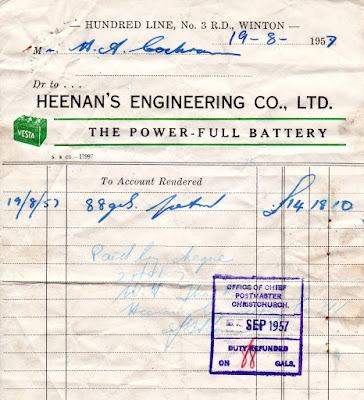 — HUNDRED LINE, No. 3 R.D., WINTON —
19-8-1957
M r H. A. Cochran
Dr to . . .
HEENAN'S ENGINEERING CO., LTD.
VESTA
THE POWER-FULL BATTERY
S. & CO.—17997
To Account Rendered
19/8/57 88 gls. petrol £14 18 10
Paid by cheque
OFFICE OF CHIEF
POSTMASTER
CHRISTCHURCH.
SEP 1957
DUTY REFUNDED
ON 88 GALS.